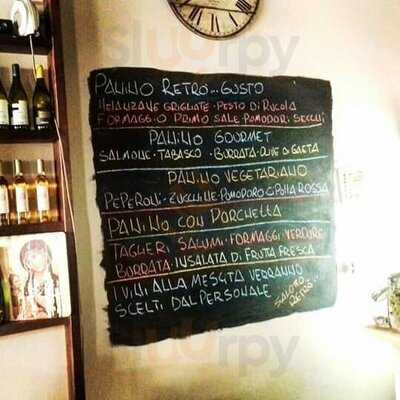 PANINO RETRO... GUSTO
MELANZANE GRIGLIATE - PESTO DI RUCOLA
FORMAGGIO PRIMO SALE POMODORI SECCHI
PANINO GOURMET
SALMONE - TABASCO - BURRATA - OLIVE DI GAETA
PANINO VEGETARIANO
PEPERONI - ZUCCHINE - POMODORO CIPOLLA ROSSA
PANINO CON PORCHETTA
TAGLIERI SALUMI - FORMAGGI VERDURE
BURRATA - INSALATA DI FRUTTA FRESCA
I VINI ALLA MESCITA VERRANNO
SCELTI DAL PERSONALE
SALOTTO
RETRÒ
sluurpy